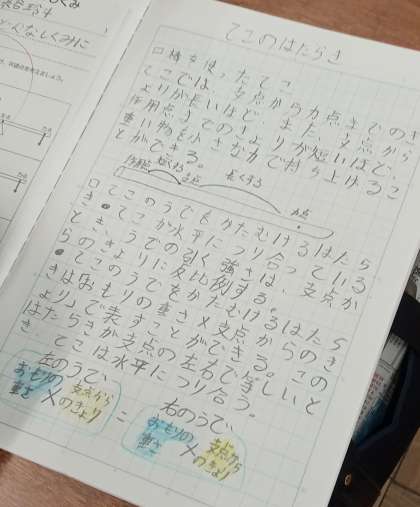 てこのはたらき
□棒を使ったてこ
てこでは、支点から力点までのき
ょりが長いほど、また、支点から
作用点までのきょりが短いほど、
重い物を小さな力で持ち上げるこ
とができる。
作用点 短くする 支点 長くする 力点
□てこのうでをかたむけるはたら
き●てこが水平につり合っている
とき、うでの引く強さは、支点か
らのきょりに反比例する。
●てこのうでをかたむけるはたら
きは「おもりの重さ×支点からのき
ょり」で表すことができる。この
はたらきが支点の左右で等しいと
き
てこは水平につり合う。
左のうで、
おもりの重さ×支点からのきょり
=
右のうで、
おもりの重さ×支点からのきょり
どんなしくみに